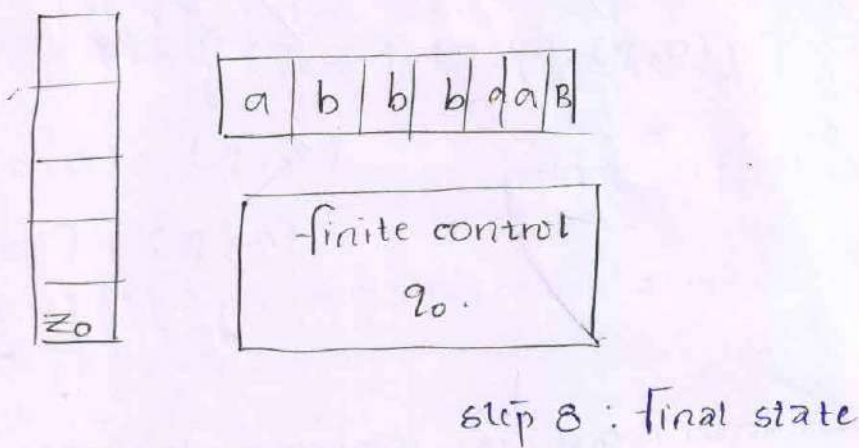 a b b b a a B
finite control
q₀.
Z₀
step 8 : final state